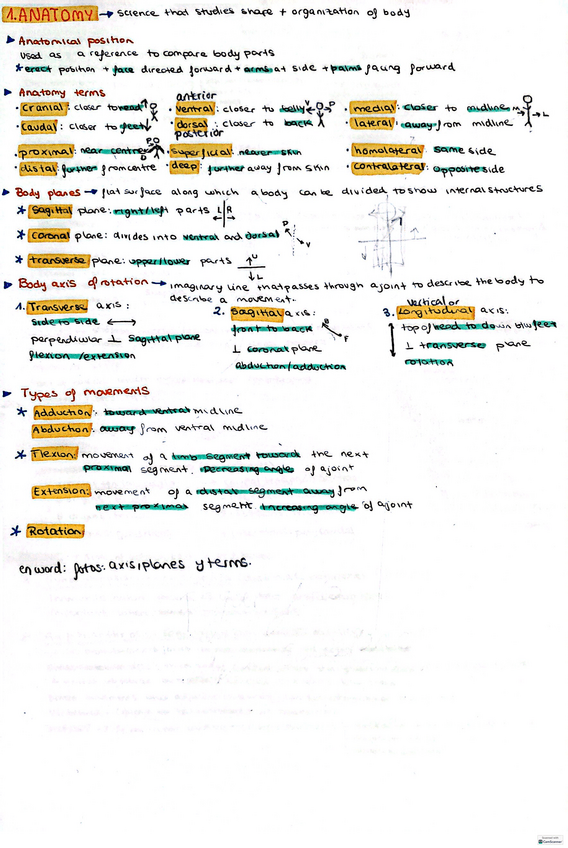 1. ANATOMY → science that studies shape + organization of body
Anatomical position
used as a reference to compare body parts
* erect position + face directed forward + arms at side + palms facing forward
Anatomy terms
anterior
· cranial: closer to head · ventral: closer to belly · medial: closer to midline
· caudal: closer to feet · dorsal: closer to back · lateral: away from midline
posterior
· proximal: near centre · superficial: nearer skin · homolateral: same side
· distal: further from centre · deep: further away from skin · contralateral: opposite side
Body planes → flat surface along which a body can be divided to show internal structures
* sagittal plane: right/left parts L|R
* coronal plane: divides into ventral and dorsal D V
* transverse plane: upper/lower parts ↑U ↓L
Body axis of rotation → imaginary line that passes through a joint to describe the body to
describe a movement.
vertical or
1. Transverse axis: 2. Sagittal axis: 3. Longitudinal axis:
side to side ↔ front to back top of head to down b/w feet
perpendicular ⊥ sagittal plane ⊥ coronal plane ⊥ transverse plane
flexion/extension abduction/adduction rotation
Types of movements
* Adduction: toward ventral midline
Abduction: away from ventral midline
* Flexion: movement of a limb segment toward the next
proximal segment. Decreasing angle of a joint
Extension: movement of a distal segment away from
next proximal segment. Increasing angle of a joint
* Rotation
en word: fotos: axis, planes y terms.
CamScanner